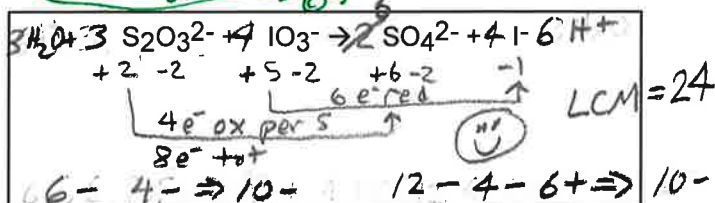 3 H₂O + 3 S2O32- + 4 IO3- → 6 SO42- + 4 I- 6 H+
+2 -2 +5 -2 +6 -2 -1
6 e⁻ red
LCM = 24
4e⁻ ox per S
8e⁻ tot
6- 4- ⇒ 10- 12- 4- 6+ ⇒ 10-